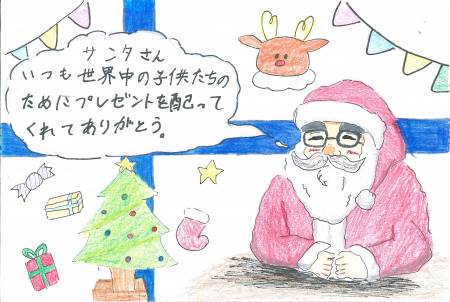 サンタさん
いつも世界中の子供たちの
ためにプレゼントを配って
くれてありがとう。